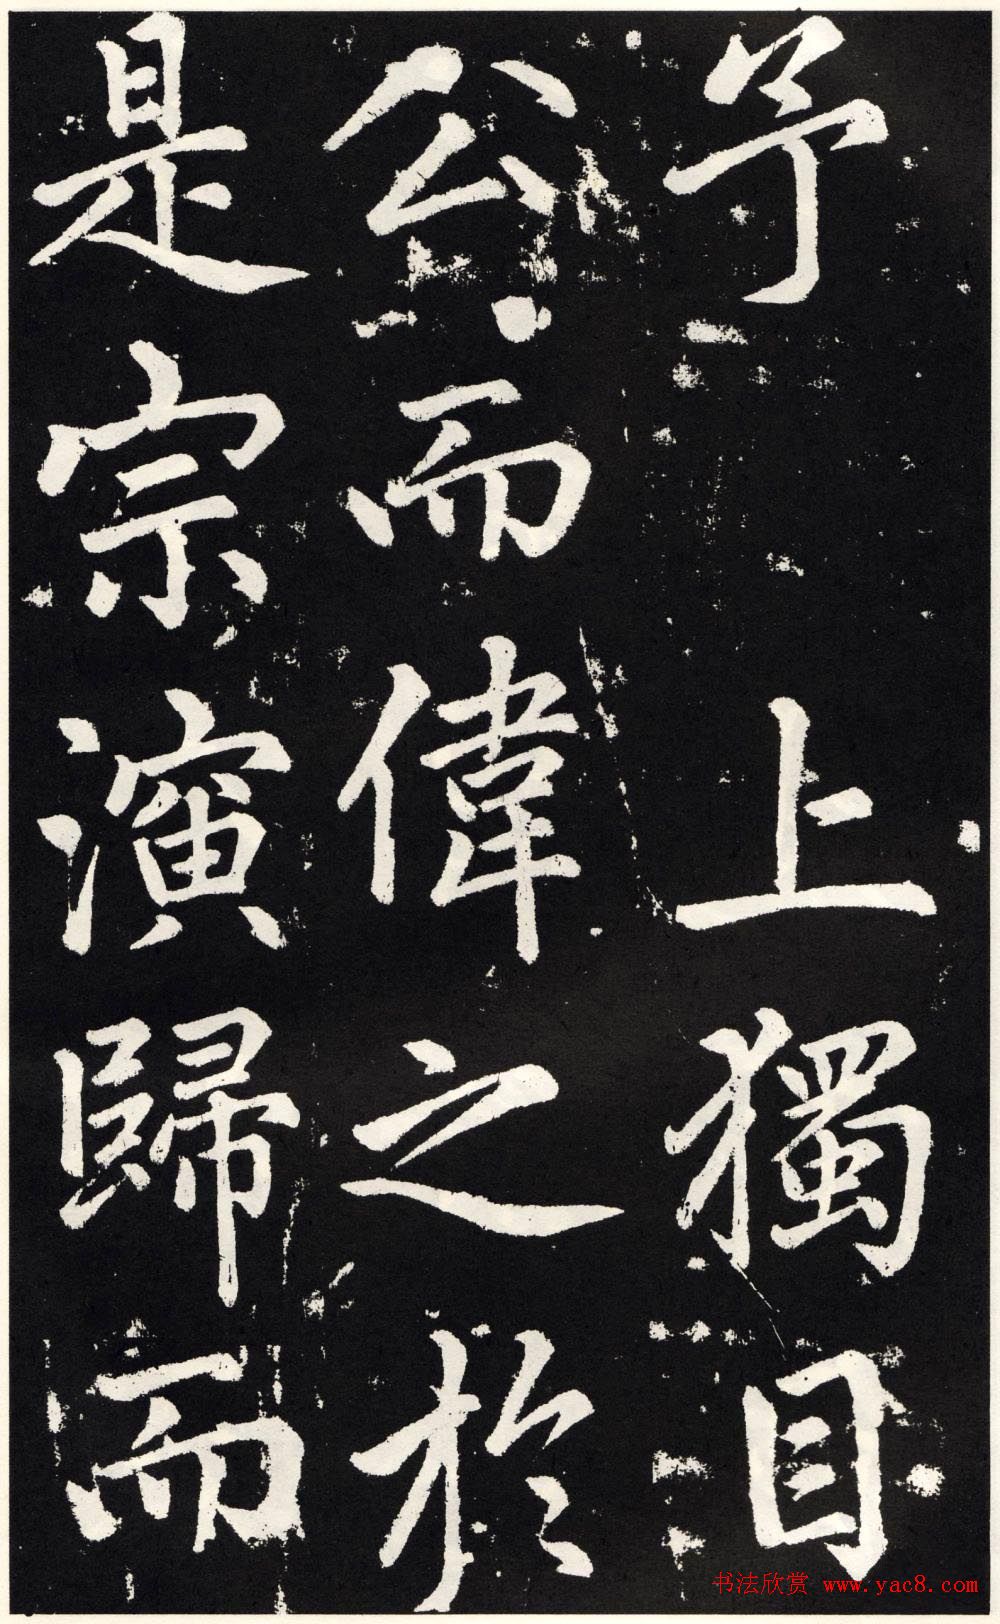 予　上獨目
公而偉之於
是宗演歸而
书法欣赏 www.yac8.com